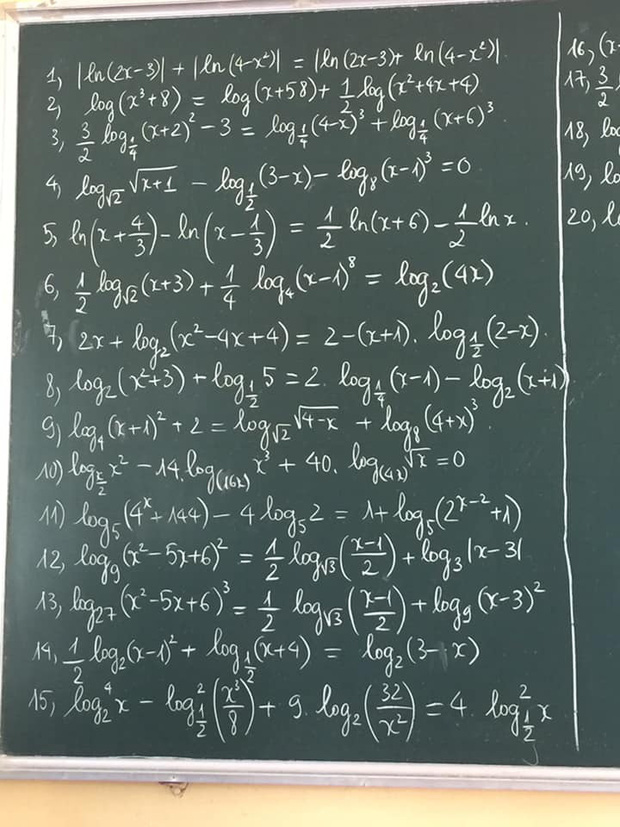 1, |ln(2x-3)| + |ln(4-x²)| = |ln(2x-3) + ln(4-x²)|
2, log(x³+8) = log(x+58) + 1/2 log(x²+4x+4)
3, 3/2 log_{1/4}(x+2)² - 3 = log_{1/4}(4-x)³ + log_{1/4}(x+6)³
4, log_{√2} √(x+1) - log_{1/2}(3-x) - log_8(x-1)³ = 0
5, ln(x + 4/3) - ln(x - 1/3) = 1/2 ln(x+6) - 1/2 ln x.
6, 1/2 log_{√2}(x+3) + 1/4 log_4(x-1)⁸ = log_2(4x)
7, 2x + log_2(x²-4x+4) = 2-(x+1). log_{1/2}(2-x).
8, log_2(x²+3) + log_{1/2} 5 = 2. log_{1/4}(x-1) - log_2(x+1)
9) log_4(x+1)² + 2 = log_{√2} √(4-x) + log_8(4+x)³.
10) log_{x/2} x² - 14. log_{(16x)} x³ + 40. log_{(4x)} √x = 0
11) log_5(4^x + 144) - 4 log_5 2 = 1 + log_5(2^{x-2} + 1)
12, log_9(x²-5x+6)² = 1/2 log_{√3}((x-1)/2) + log_3 |x-3|
13, log_27(x²-5x+6)³ = 1/2 log_{√3}((x-1)/2) + log_9 (x-3)²
14, 1/2 log_2(x-1)² + log_{1/2}(x+4) = log_2(3-x)
15, log_2⁴ x - log²_{1/2}(x³/8) + 9. log_2(32/x²) = 4. log²_{1/2} x
16, (x-
17, 3/2
18, lo
19, lo
20, lo